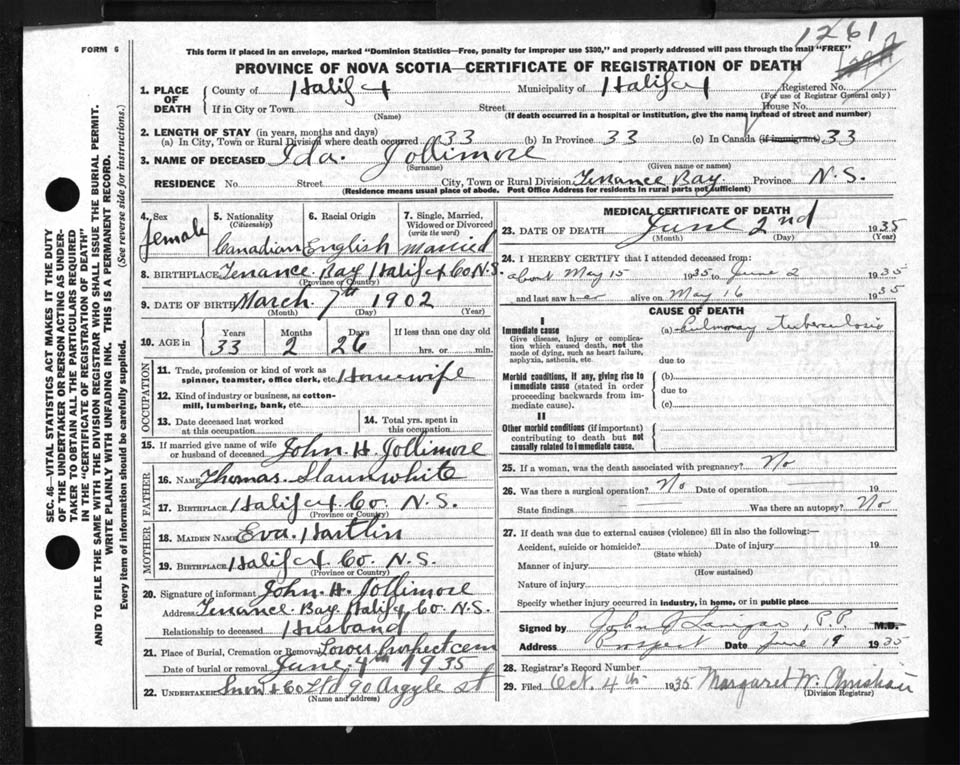 FORM 6
This form if placed in an envelope, marked "Dominion Statistics—Free, penalty for improper use $300," and properly addressed will pass through the mail "FREE"
1261
PROVINCE OF NOVA SCOTIA—CERTIFICATE OF REGISTRATION OF DEATH
SEC. 46—VITAL STATISTICS ACT MAKES IT THE DUTY
OF THE UNDERTAKER OR PERSON ACTING AS UNDER-
TAKER TO OBTAIN ALL THE PARTICULARS REQUIRED
IN THE "CERTIFICATE OF REGISTRATION OF DEATH"
AND TO FILE THE SAME WITH THE DIVISION REGISTRAR WHO SHALL ISSUE THE BURIAL PERMIT.
WRITE PLAINLY WITH UNFADING INK. THIS IS A PERMANENT RECORD.
Every item of information should be carefully supplied. (See reverse side for instructions.)
1. PLACE OF DEATH County of Halifax Municipality of Halifax Registered No.
(For use of Registrar General only)
If in City or Town Street House No.
(Name) (If death occurred in a hospital or institution, give the name instead of street and number)
2. LENGTH OF STAY (in years, months and days)
(a) In City, Town or Rural Division where death occurred 33 (b) In Province 33 (c) In Canada (if immigrant) 33
3. NAME OF DECEASED Ida Jollimore
(Surname) (Given name or names)
RESIDENCE No. Street City, Town or Rural Division Terance Bay Province N.S.
(Residence means usual place of abode. Post Office Address for residents in rural parts not sufficient)
4. Sex female
5. Nationality (Citizenship) Canadian
6. Racial Origin English
7. Single, Married, Widowed or Divorced (write the word) Married
8. BIRTHPLACE Terance Bay Halifax Co N.S.
(Province or Country)
9. DATE OF BIRTH March 7th 1902
(Month) (Day) (Year)
10. AGE in Years 33 Months 2 Days 26 If less than one day old hrs. or min.
OCCUPATION
11. Trade, profession or kind of work as spinner, teamster, office clerk, etc. Housewife
12. Kind of industry or business, as cotton-mill, lumbering, bank, etc.
13. Date deceased last worked at this occupation
14. Total yrs. spent in this occupation
15. If married give name of wife or husband of deceased John H Jollimore
FATHER
16. NAME Thomas Slaunwhite
17. BIRTHPLACE Halifax Co. N.S.
(Province or Country)
MOTHER
18. MAIDEN NAME Eva Hartlin
19. BIRTHPLACE Halifax Co. N.S.
(Province or Country)
20. Signature of informant John H. Jollimore
Address Terance Bay Halifax Co. N.S.
Relationship to deceased Husband
21. Place of Burial, Cremation or Removal Lower Prospect cem
Date of burial or removal June 4th 1935
22. UNDERTAKER Snow & Co Ltd 90 Argyle st
(Name and address)
MEDICAL CERTIFICATE OF DEATH
23. DATE OF DEATH June 2nd 1935
(Month) (Day) (Year)
24. I HEREBY CERTIFY that I attended deceased from:
about May 15 1935 to June 2 1935
and last saw her alive on May 16 1935
CAUSE OF DEATH
I
Immediate cause (a) Pulmonary tuberculosis
Give disease, injury or complication which caused death, not the mode of dying, such as heart failure, asphyxia, asthenia, etc.
due to
Morbid conditions, if any, giving rise to immediate cause (stated in order proceeding backwards from immediate cause).
(b)
due to
(c)
II
Other morbid conditions (if important) contributing to death but not causally related to immediate cause.
25. If a woman, was the death associated with pregnancy? No
26. Was there a surgical operation? No Date of operation 19
State findings Was there an autopsy? No
27. If death was due to external causes (violence) fill in also the following:—
Accident, suicide or homicide? Date of injury 19
(State which)
Manner of injury
(How sustained)
Nature of injury
Specify whether injury occurred in industry, in home, or in public place
Signed by John J Lanigan, P.P. M.D.
Address Prospect Date June 19 1935
28. Registrar's Record Number
29. Filed Oct. 4th 1935 Margaret W. Christian
(Division Registrar)